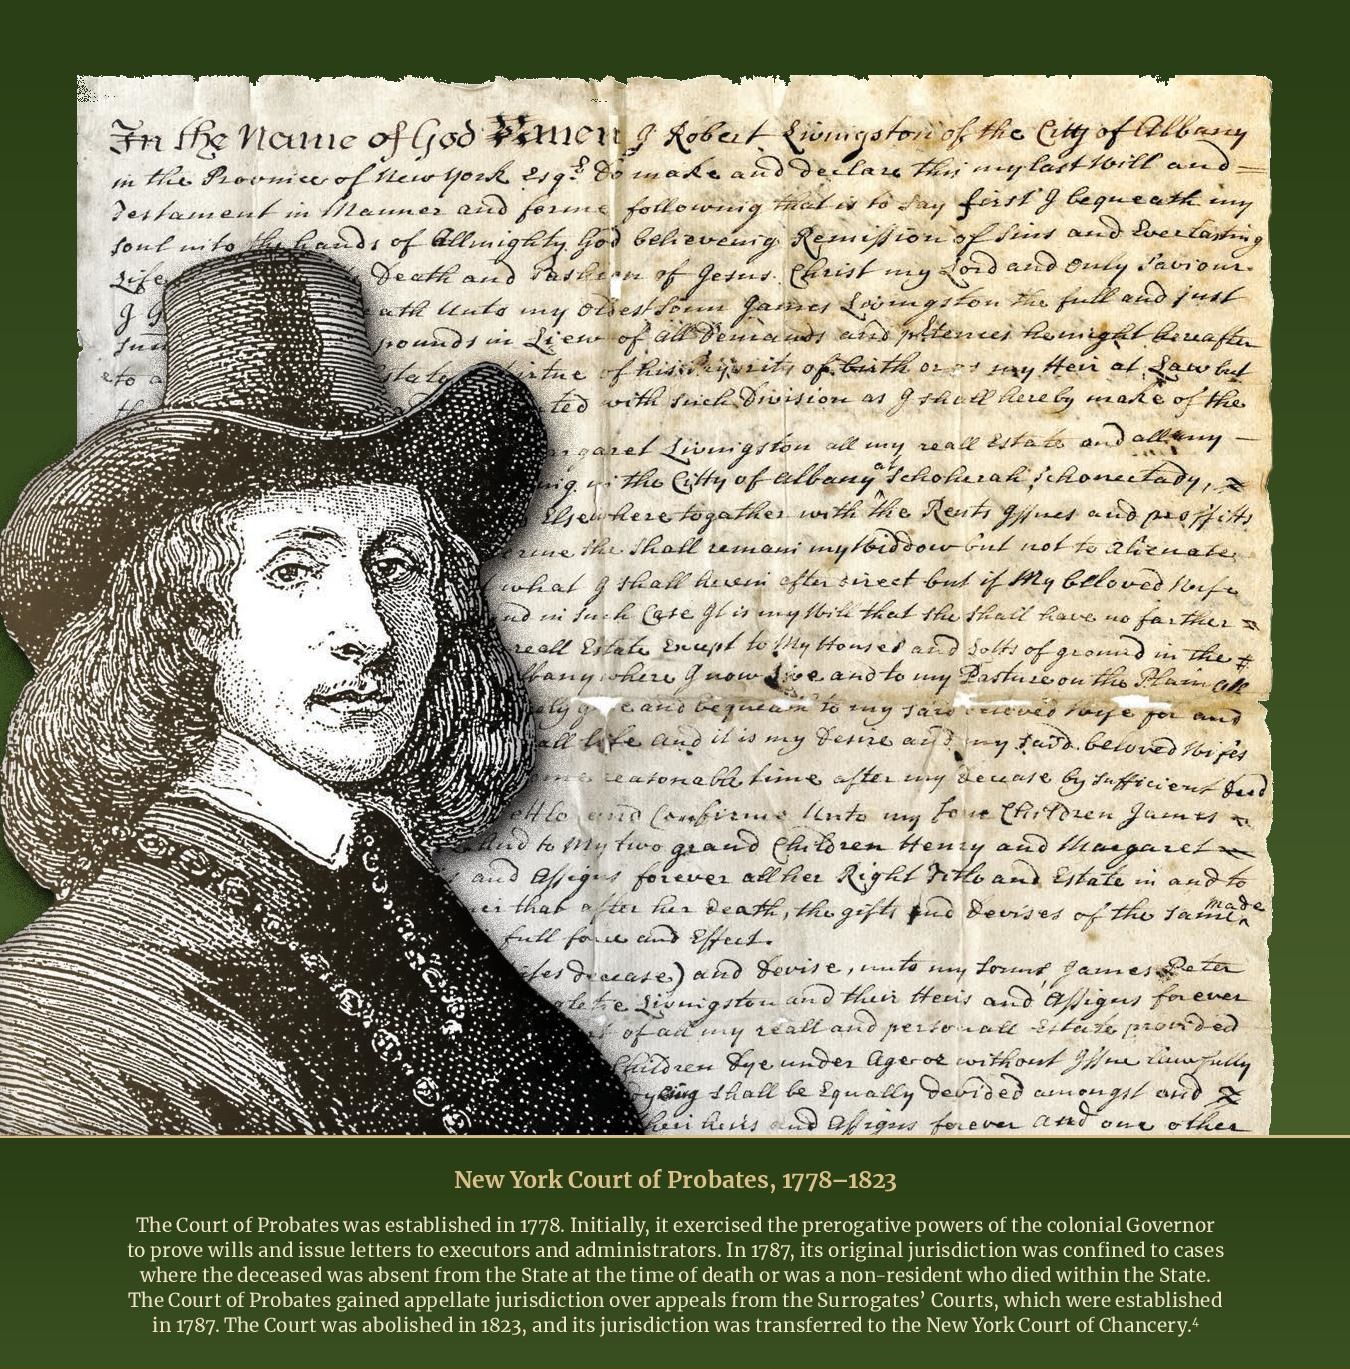 In the Name of God Amen I Robert Livingston of the Citty of Albany
in the Province of New York Esqr. Do make and declare this my last Will and
Testament in Manner and forme following that is to say first I bequeath my
soul into the hands of Allmighty God believeing Remission of sins and Everlasting
Life Death and Passion of Jesus Christ my Lord and Only Saviour
I Unto my Oldest Sonn James Livingston the full and just
pounds in Liew of all Demands and pretences he might hereafter
to a virtue of his of birth or as my Heir at Law but
with such Division as I shall hereby make of the
Livingston all my reall Estate and all my
in the Citty of Albany at Schoherah Schonectady,
Elsewhere togather with the Rents Issues and proffitts
she shall remain my Widdow but not to alienate
what I shall herein after direct but if My beloved Wife
and in such Case It is my Will that she shall have no farther
reall Estate Except to My Houses and Lotts of ground in the
where I now Live and to my Pasture on the Plain all
and bequeath to my said beloved Wife for and
life and it is my Desire and my said beloved Wifes
reasonable time after my decease by sufficient Deed
and Confirme Unto my four Children James
And to My two grand Children Henry and Margaret
and Assigns forever all her Right Title and Estate in and to
that after her death, the gifts and Devises of the same made
full force and Effect.
decease) and Devise, unto my Sonns James Peter
Livingston and their Heirs and Assigns forever
of all my reall and personall Estate provided
Children Dye under Age or without Issue lawfully
shall be Equally devided amongst and
heirs and Assigns forever and one other
New York Court of Probates, 1778–1823
The Court of Probates was established in 1778. Initially, it exercised the prerogative powers of the colonial Governor
to prove wills and issue letters to executors and administrators. In 1787, its original jurisdiction was confined to cases
where the deceased was absent from the State at the time of death or was a non-resident who died within the State.
The Court of Probates gained appellate jurisdiction over appeals from the Surrogates’ Courts, which were established
in 1787. The Court was abolished in 1823, and its jurisdiction was transferred to the New York Court of Chancery.⁴